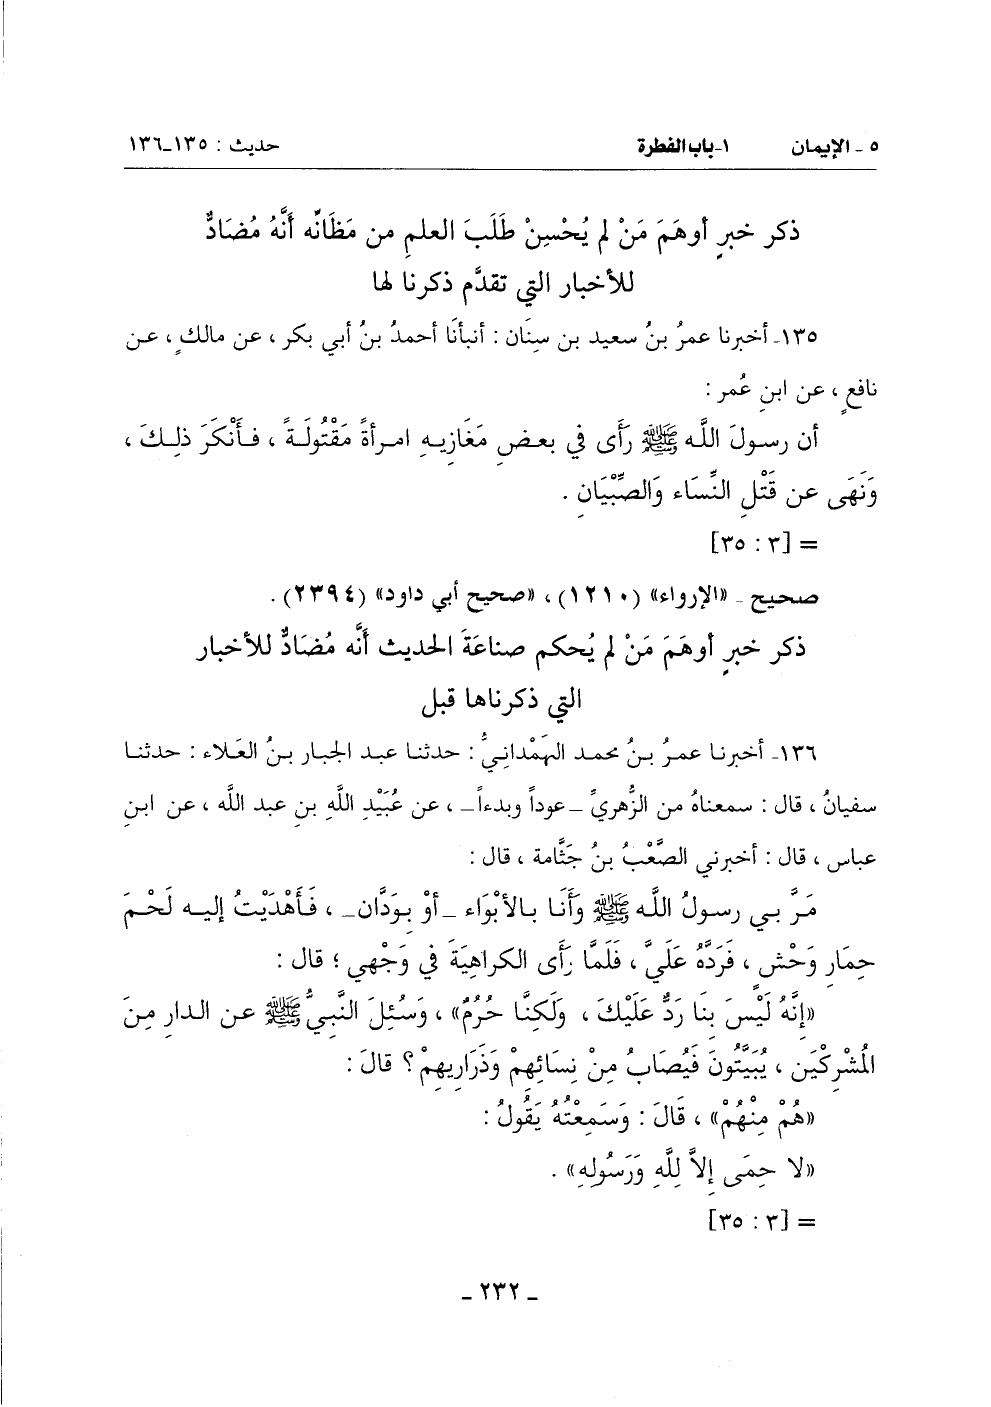 ٥ ـ الإيمان ١-باب الفطرة حديث : ١٣٥ـ١٣٦
ذكر خبرٍ أوهَمَ مَنْ لم يُحْسِنْ طَلَبَ العلمِ من مَظَانِّه أنَّهُ مُضَادٌّ
للأخبار التي تقدَّم ذكرنا لها
١٣٥ـ أخبرنا عمرُ بنُ سعيد بن سِنَان : أنبأنَا أحمدُ بنُ أبي بكر ، عن مالكٍ ، عن
نافعٍ ، عن ابنِ عُمر :
أن رسولَ اللَّه ﷺ رَأَى في بعضِ مَغَازِيهِ امرأةً مَقْتُولَةً ، فأَنْكَرَ ذلِكَ ،
وَنَهَى عن قَتْلِ النِّسَاء وَالصِّبْيَانِ .
= [٣ : ٣٥]
صحيح ـ «الإرواء» (١٢١٠) ، «صحيح أبي داود» (٢٣٩٤) .
ذكر خبرٍ أوهَمَ مَنْ لم يُحكم صناعَةَ الحديث أنَّه مُضَادٌّ للأخبار
التي ذكرناها قبل
١٣٦ـ أخبرنا عمرُ بنُ محمد الهَمْدانِيُّ : حدثنا عبد الجبار بنُ العَلاء : حدثنا
سفيانُ ، قال : سمعناهُ من الزُّهريِّ ـعوداً وبدءاًـ ، عن عُبَيْدِ اللَّهِ بنِ عبد الله ، عن ابنِ
عباس ، قال : أخبرني الصَّعْبُ بنُ جَثَّامة ، قال :
مَرَّ بي رسولُ اللَّه ﷺ وَأَنَا بالأبْوَاء ـأوْ بِوَدَّان ـ ، فَأَهْدَيْتُ إليه لَحْمَ
حِمَارِ وَحْشٍ ، فَرَدَّهُ عَلَيَّ ، فَلَمَّا رَأَى الكراهِيَةَ في وَجْهي ؛ قال :
«إنَّهُ لَيْسَ بِنَا رَدٌّ عَلَيْكَ ، وَلَكِنَّا حُرُمٌ» ، وَسُئِلَ النَّبيُّ ﷺ عن الدارِ مِنَ
المُشْرِكْيَن ، يُبَيَّتُونَ فَيُصَابُ مِنْ نِسَائِهِمْ وَذَرَارِيهِمْ ؟ قالَ :
«هُمْ مِنْهُمْ» ، قَالَ : وَسَمِعْتُهُ يَقُولُ :
«لا حِمَى إلاَّ لِلَّهِ وَرَسُولِهِ» .
= [٣ : ٣٥]
ـ ٢٣٢ ـ